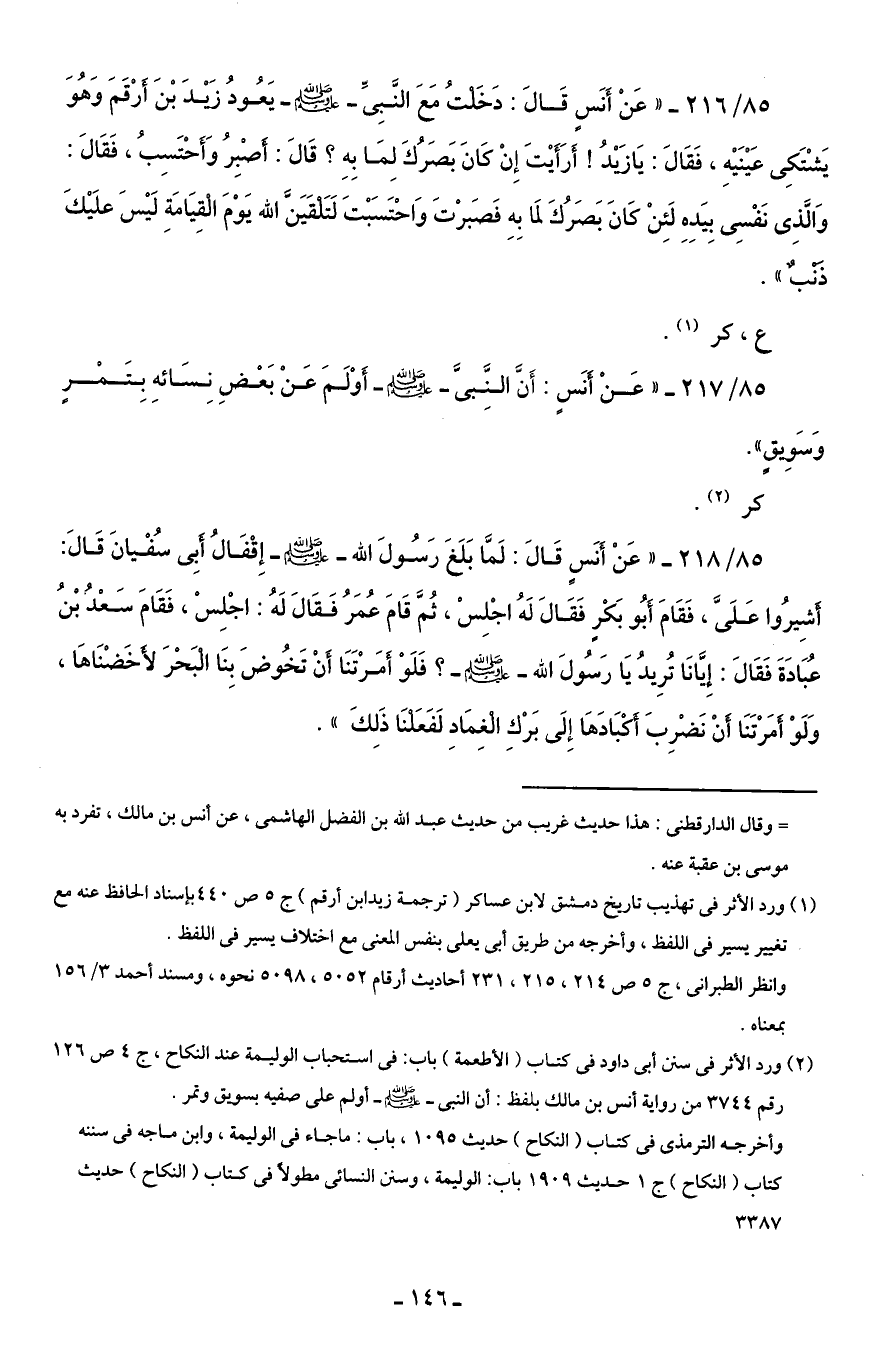 ٨٥/ ٢١٦ ـ « عَنْ أَنَسٍ قَـالَ : دَخَلْتُ مَعَ النَّـبِىِّ ـ ﷺ ـ يَعُودُ زَيْـدَ بْنَ أَرْقَمَ وَهُوَ
يَشْتَكِى عَيْنَيْهِ ، فَقَالَ : يَازَيْدُ ! أَرَأَيْتَ إِنْ كَانَ بَصَرُكَ لِمَـا بِهِ ؟ قَالَ : أَصْبِرُ وَأَحْتَسِبُ ، فَقَالَ :
وَالَّذِى نَفْسِى بِيَدِهِ لَئِنْ كَانَ بَصَرُكَ لِمَا بِهِ فَصَبَرْتَ وَاحْتَسَبْتَ لَتَلْقَيَنَّ الله يَوْمَ الْقِيَامَةِ لَيْسَ عَلَيْكَ
ذَنْبٌ » .
ع ، كر (١) .
٨٥/ ٢١٧ ـ « عَـنْ أَنَسٍ : أَنَّ الـنَّـبِىَّ ـ ﷺ ـ أَوْلَـمَ عَـنْ بَعْـضِ نِـسَـائِهِ بِـتَـمْـرٍ
وَسَوِيقٍ».
كر (٢) .
٨٥/ ٢١٨ ـ « عَنْ أَنَسٍ قَـالَ : لَمَّا بَلَغَ رَسُـولَ الله ـ ﷺ ـ إِقْفَـالُ أَبِى سُفْـيانَ قَـالَ:
أَشِيرُوا عَـلَىَّ ، فَقَامَ أَبُو بَكْرٍ فَقَـالَ لَهُ اجْلِسْ ، ثُمَّ قَامَ عُمَرُ فَـقَالَ لَهُ : اجْلِسْ ، فَقَامَ سَعْـدُ بْنُ
عُبَادَةَ فَقَالَ : إِيَّانَا تُرِيدُ يَا رَسُولَ الله ـ ﷺ ـ ؟ فَلَوْ أَمَـرْتَنَا أَنْ نَخُوضَ بِنَا الْبَحْرَ لأَخَضْنَاهَا ،
وَلَوْ أَمَرْتَنَا أَنْ نَضْرِبَ أَكْبَادَهَا إِلَى بَرْكِ الْغِمَادِ لَفَعَلْنَا ذَلِكَ » .
= وقال الدارقطنى : هذا حديث غريب من حديث عبـد الله بن الفضل الهاشمى ، عن أنس بن مالك ، تفرد به
موسى بن عقبة عنه .
(١) ورد الأثر فى تهذيب تاريخ دمشق لابن عساكر ( ترجمـة زيدابن أرقم ) ج ٥ ص ٤٤٠ بإسناد الحافظ عنه مع
تغيير يسير فى اللفظ ، وأخرجه من طريق أبى يعلى بنفس المعنى مع اختلاف يسير فى اللفظ .
وانظر الطبرانى ، ج ٥ ص ٢١٤ ، ٢١٥ ، ٢٣١ أحاديث أرقام ٥٠٥٢ ، ٥٠٩٨ نحوه ، ومسند أحمد ٣/ ١٥٦
بمعناه .
(٢) ورد الأثر فى سنن أبى داود فى كتـاب ( الأطعمة ) باب: فى استحباب الوليـمة عند النكاح ، ج ٤ ص ١٢٦
رقم ٣٧٤٤ من رواية أنس بن مالك بلفظ : أن النبى ـ ﷺ ـ أولم على صفيه بسويق وتمر .
وأخرجـه الترمذى فى كتـاب ( النكاح ) حديث ١٠٩٥ ، باب : ماجـاء فى الوليمة ، وابن مـاجه فى سننه
كتاب ( النكاح ) ج ١ حـديث ١٩٠٩ باب: الوليمة ، وسنن النسائى مطولاً فى كـتاب ( النكاح ) حديث
٣٣٨٧
ـ ١٤٦ ـ